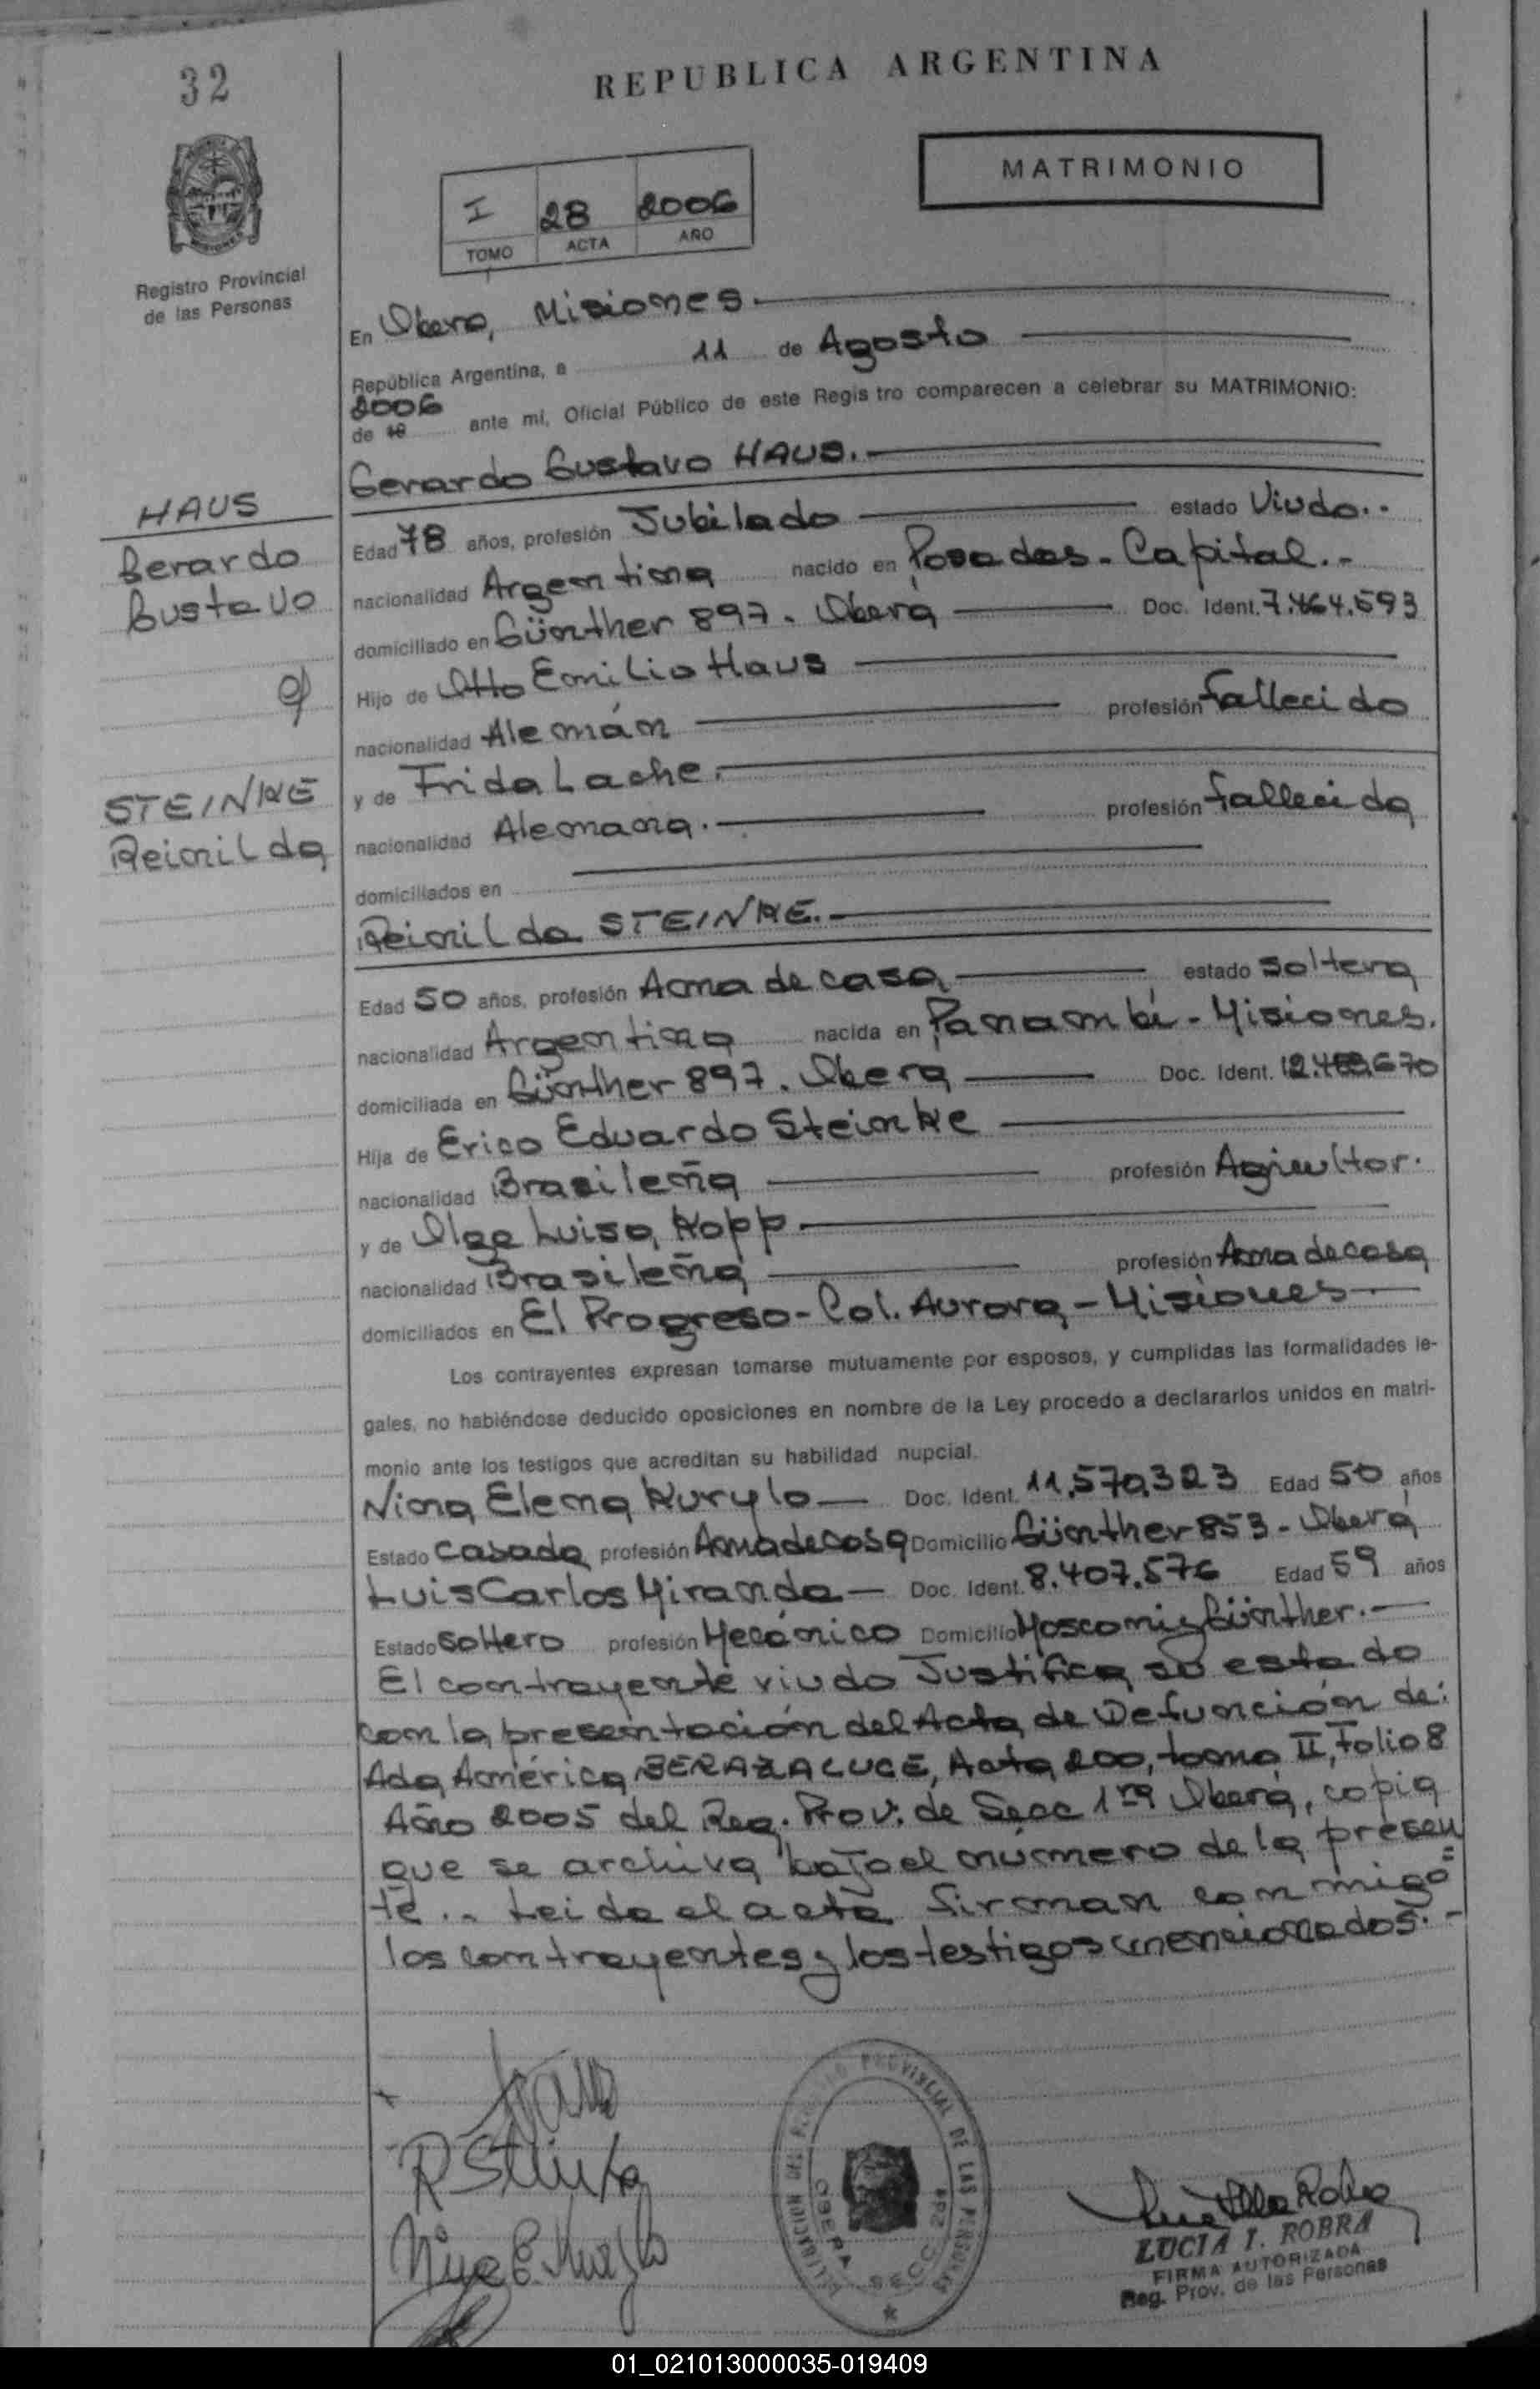 32
REPUBLICA ARGENTINA
MATRIMONIO
I 28 2006
TOMO ACTA AÑO
Registro Provincial
de las Personas
En Oberá, Misiones.
República Argentina, a 11 de Agosto
2006
de 19 ante mi, Oficial Público de este Registro comparecen a celebrar su MATRIMONIO:
Gerardo Gustavo HAUS.
HAUS
Gerardo
Gustavo
Edad 78 años, profesión Jubilado estado Viudo.-
nacionalidad Argentina nacido en Posadas - Capital.-
domiciliado en Günther 897. Oberá Doc. Ident. 7.464.593
Hijo de Otto Emilio Haus
nacionalidad Alemán profesión fallecido
y
STEINKE
Reinilda
y de Frida Lache.
nacionalidad Alemana. profesión fallecida
domiciliados en
Reinilda STEINKE.-
Edad 50 años, profesión Ama de casa estado Soltera
nacionalidad Argentina nacida en Panambí - Misiones.
domiciliada en Günther 897. Oberá Doc. Ident.
Hija de Erico Eduardo Steinke
nacionalidad Brasileña profesión Agricultor.
y de Olga Luisa Kopp.
nacionalidad Brasileña profesión Ama de casa
domiciliados en El Progreso - Col. Aurora - Misiones
Los contrayentes expresan tomarse mutuamente por esposos, y cumplidas las formalidades le-
gales, no habiéndose deducido oposiciones en nombre de la Ley procedo a declararlos unidos en matri-
monio ante los testigos que acreditan su habilidad nupcial.
Nina Elena Kurylo Doc. Ident. 11.570.323 Edad 50 años
Estado Casada profesión Ama de casa Domicilio Günther 853 - Oberá
Luis Carlos Miranda Doc. Ident. 8.407.576 Edad 59 años
Estado Soltero profesión Mecánico Domicilio Günther.
El contrayente viudo Justifica su estado
con la presentación del Acta de Defunción de:
Ada América BERAZALUCE, Acta 200, tomo II, Folio 8
Año 2005 del Reg. Prov. de Secc 1ra Oberá, copia
que se archiva bajo el número de la presen
te.. Leida el acta firman conmigo
los contrayentes y los testigos mencionados.-
DELEGACION DEL REGISTRO PROVINCIAL DE LAS PERSONAS
OBERA SECC. 2da
LUCIA I. ROBRA
FIRMA AUTORIZADA
Reg. Prov. de las Personas
01_021013000035-019409